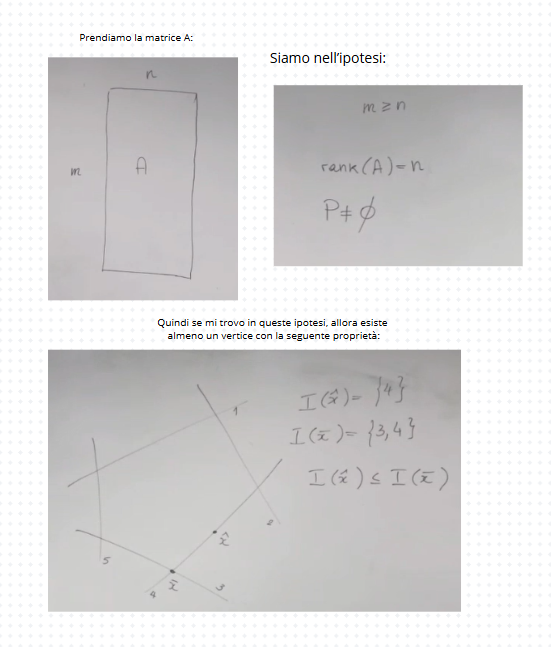 Prendiamo la matrice A:
Siamo nell'ipotesi:
n
m
A
m ≥ n
rank(A)=n
P≠ϕ
Quindi se mi trovo in queste ipotesi, allora esiste
almeno un vertice con la seguente proprietà:
I(x̂)= {4}
I(x̄)= {3,4}
I(x̂) ≤ I(x̄)
1
2
x̂
5
x̄
3
4